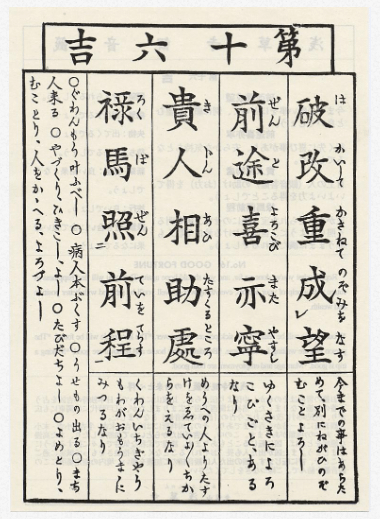 第十六吉
破改重成望
は かいて かさねて のぞみを なす
今までの事はあらた
めて別にねがひのぞ
むことよろし
前途喜亦寧
ぜん と よろこび また やすし
ゆくさきによろ
こびごとある
なり
貴人相助處
き にん あひ たすくる ところ
めうへの人よりたす
けをゑていよいよちか
らをえるなり
禄馬照二前程一
ろく ば ぜん ていを てらす
くわんいちぎやう
もわがおもうまゝに
みつるなり
○ぐわんもう叶ふべし ○病人本ぷくす ○うせもの出る ○まち
人来る ○やづくり、ひきこし、よし ○たびだちよし ○よめとり、
むことり、人をかゝへる、よろづよし